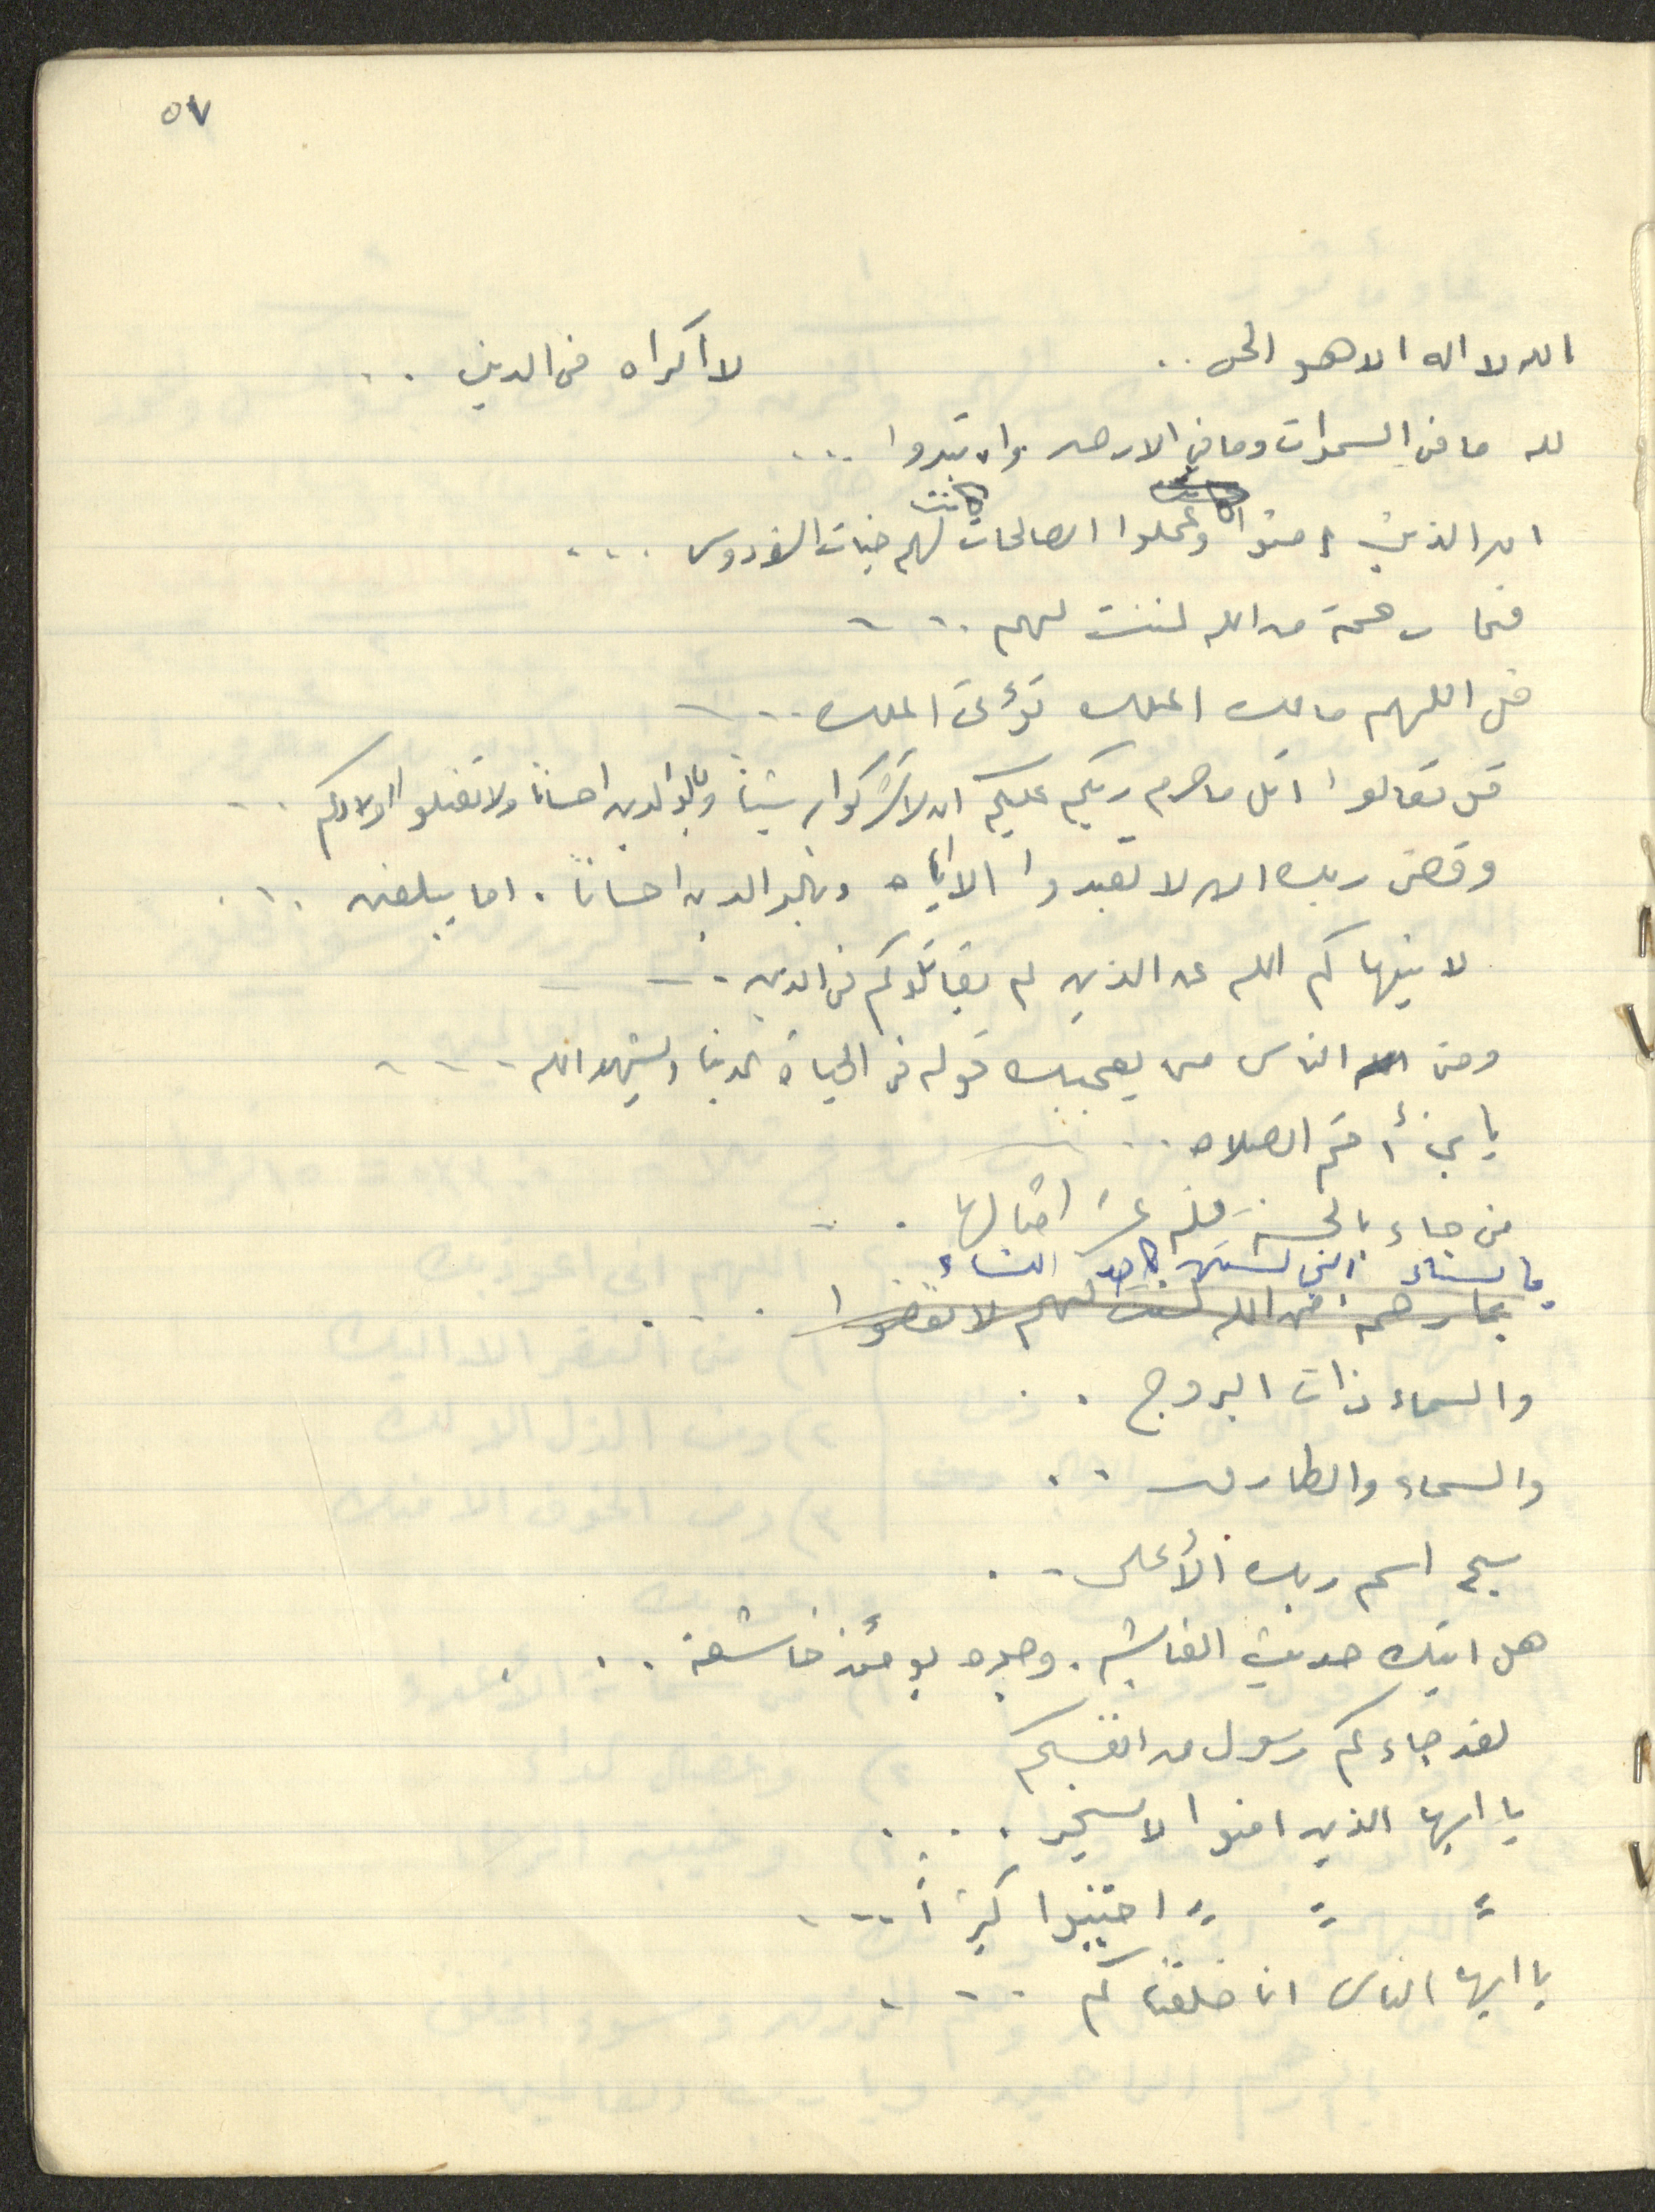 ٥٧
الله لا اله الا هو الحى .. لا اكراه فى الدين ..
لله ما فى السموات وما فى الارض وان تبدوا ...
ان الذين امنوا وعملوا الصالحات كانت لهم جنات الفردوس ...
فبما رحمة من الله لنت لهم ...
قل اللهم مالك الملك تؤتى الملك ...
قل تعالوا اتل ما حرم ربكم عليكم ان لا تشركوا به شيئا وبالوالدين احسانا ولا تقتلوا اولادكم ..
وقضى ربك ان لا تعبدوا الا اياه وبالوالدين احسانا . اما يبلغن ...
لا ينهاكم الله عن الذين لم يقاتلوكم فى الدين ..
ومن الناس من يعجبك قوله فى الحياة الدنيا ويشهد الله ...
يا بنى أقم الصلاه ..
من جاء بالحسنة فله عشر امثالها ..
يا نساء النبى لستن كاحد من النساء
بما رحمة من الله لنت لهم لا نفضوا ...
والسماء ذات البروج ..
والسماء والطارق ..
سبح اسم ربك الأعلى ..
هل اتيك حديث الغاشيه . وجوه يومئذ خاشعة ...
لقد جاءكم رسول من انفسكم
يا ايها الذين امنوا لا يسخر ...
" " " اجتنبوا كثيرًا ...
يا ايها الناس انا خلقناكم ...